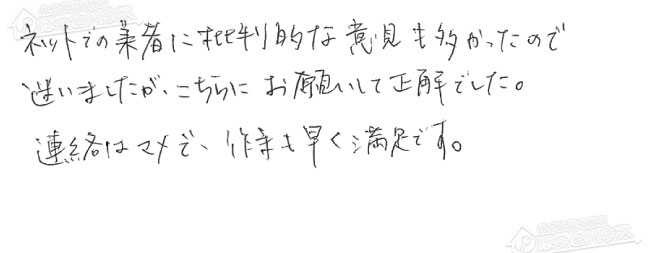 ネットでの業者に批判的な意見も多かったので
迷いましたが、こちらにお願いして正解でした。
連絡はマメで、作業も早く満足です。